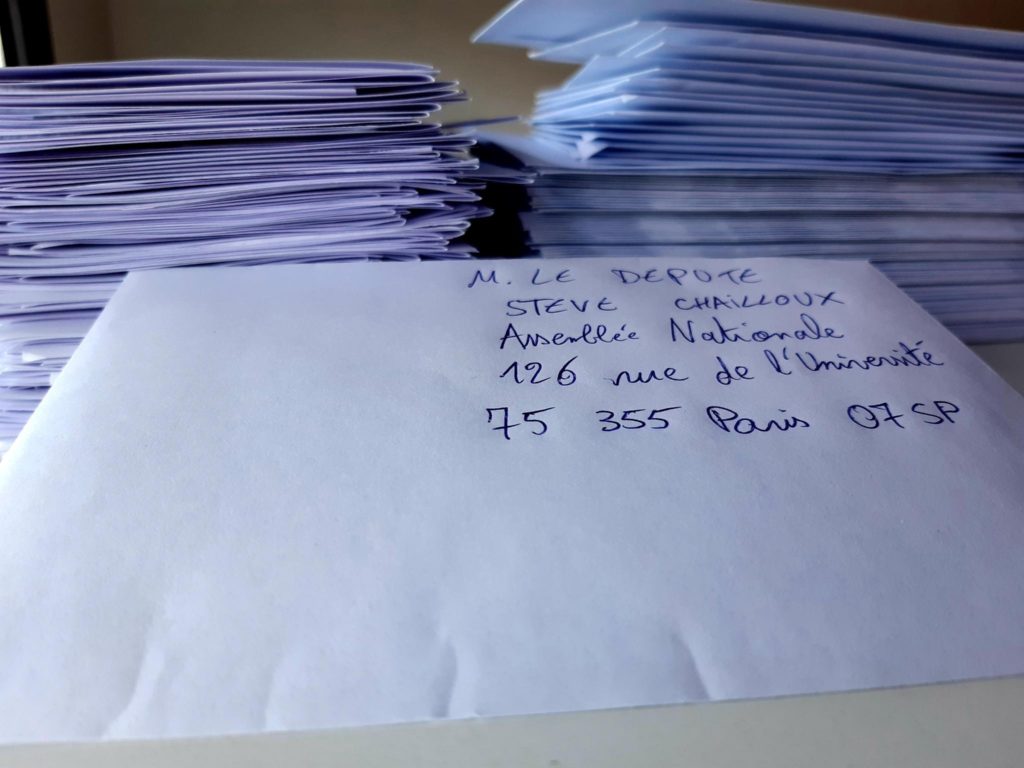 M. LE DEPUTE
STEVE CHAILLOUX
Assemblée Nationale
126 rue de l'Université
75 355 Paris 07 SP